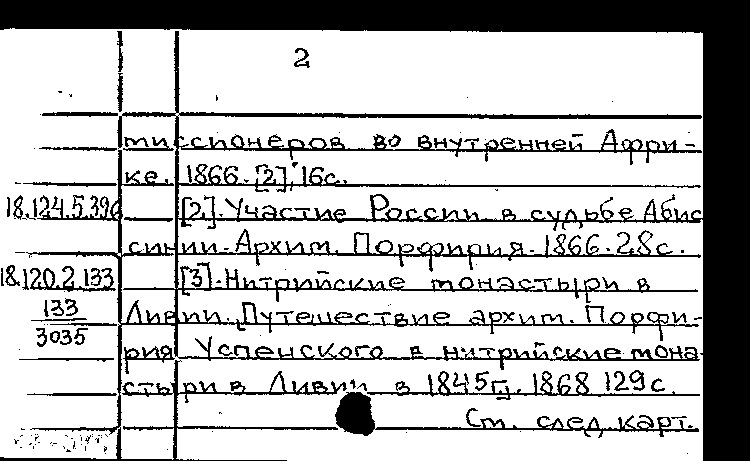 2
миссионеров во внутренней Афри-
ке. 1866. [2], 16с.
18.124.5.396 [2]. Участие России в судьбе Абис
синии. Архим. Порфирия. 1866. 28с.
18.120.2.133 [3]. Нитрийские монастыри в
133 Ливии. Путешествие архим. Порфи-
3035
рия Успенского в нитрийские мона-
стыри в Ливии в 1845г. 1868 129с.
См. след. карт.